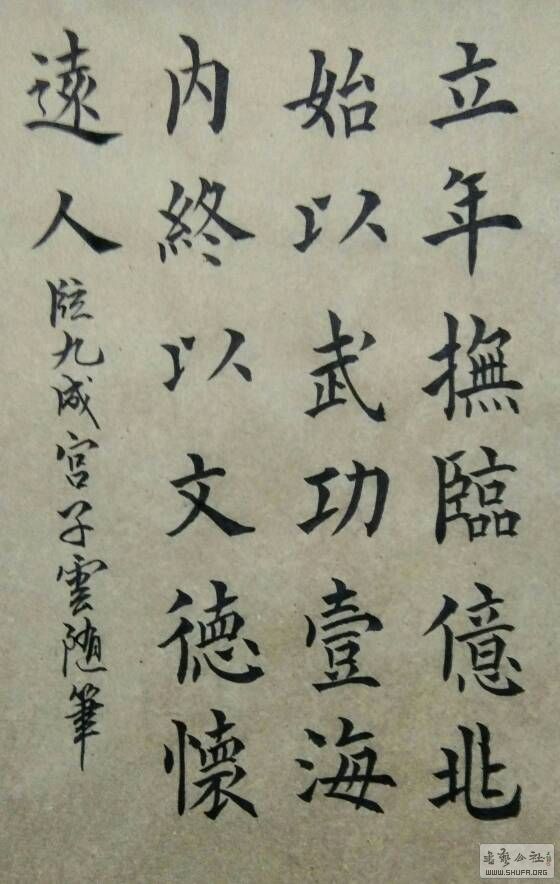 立年撫臨億兆
始以武功壹海
内終以文德懷
遠人
臨九成宮子雲随筆
书艺公社
WWW.SHUFA.ORG